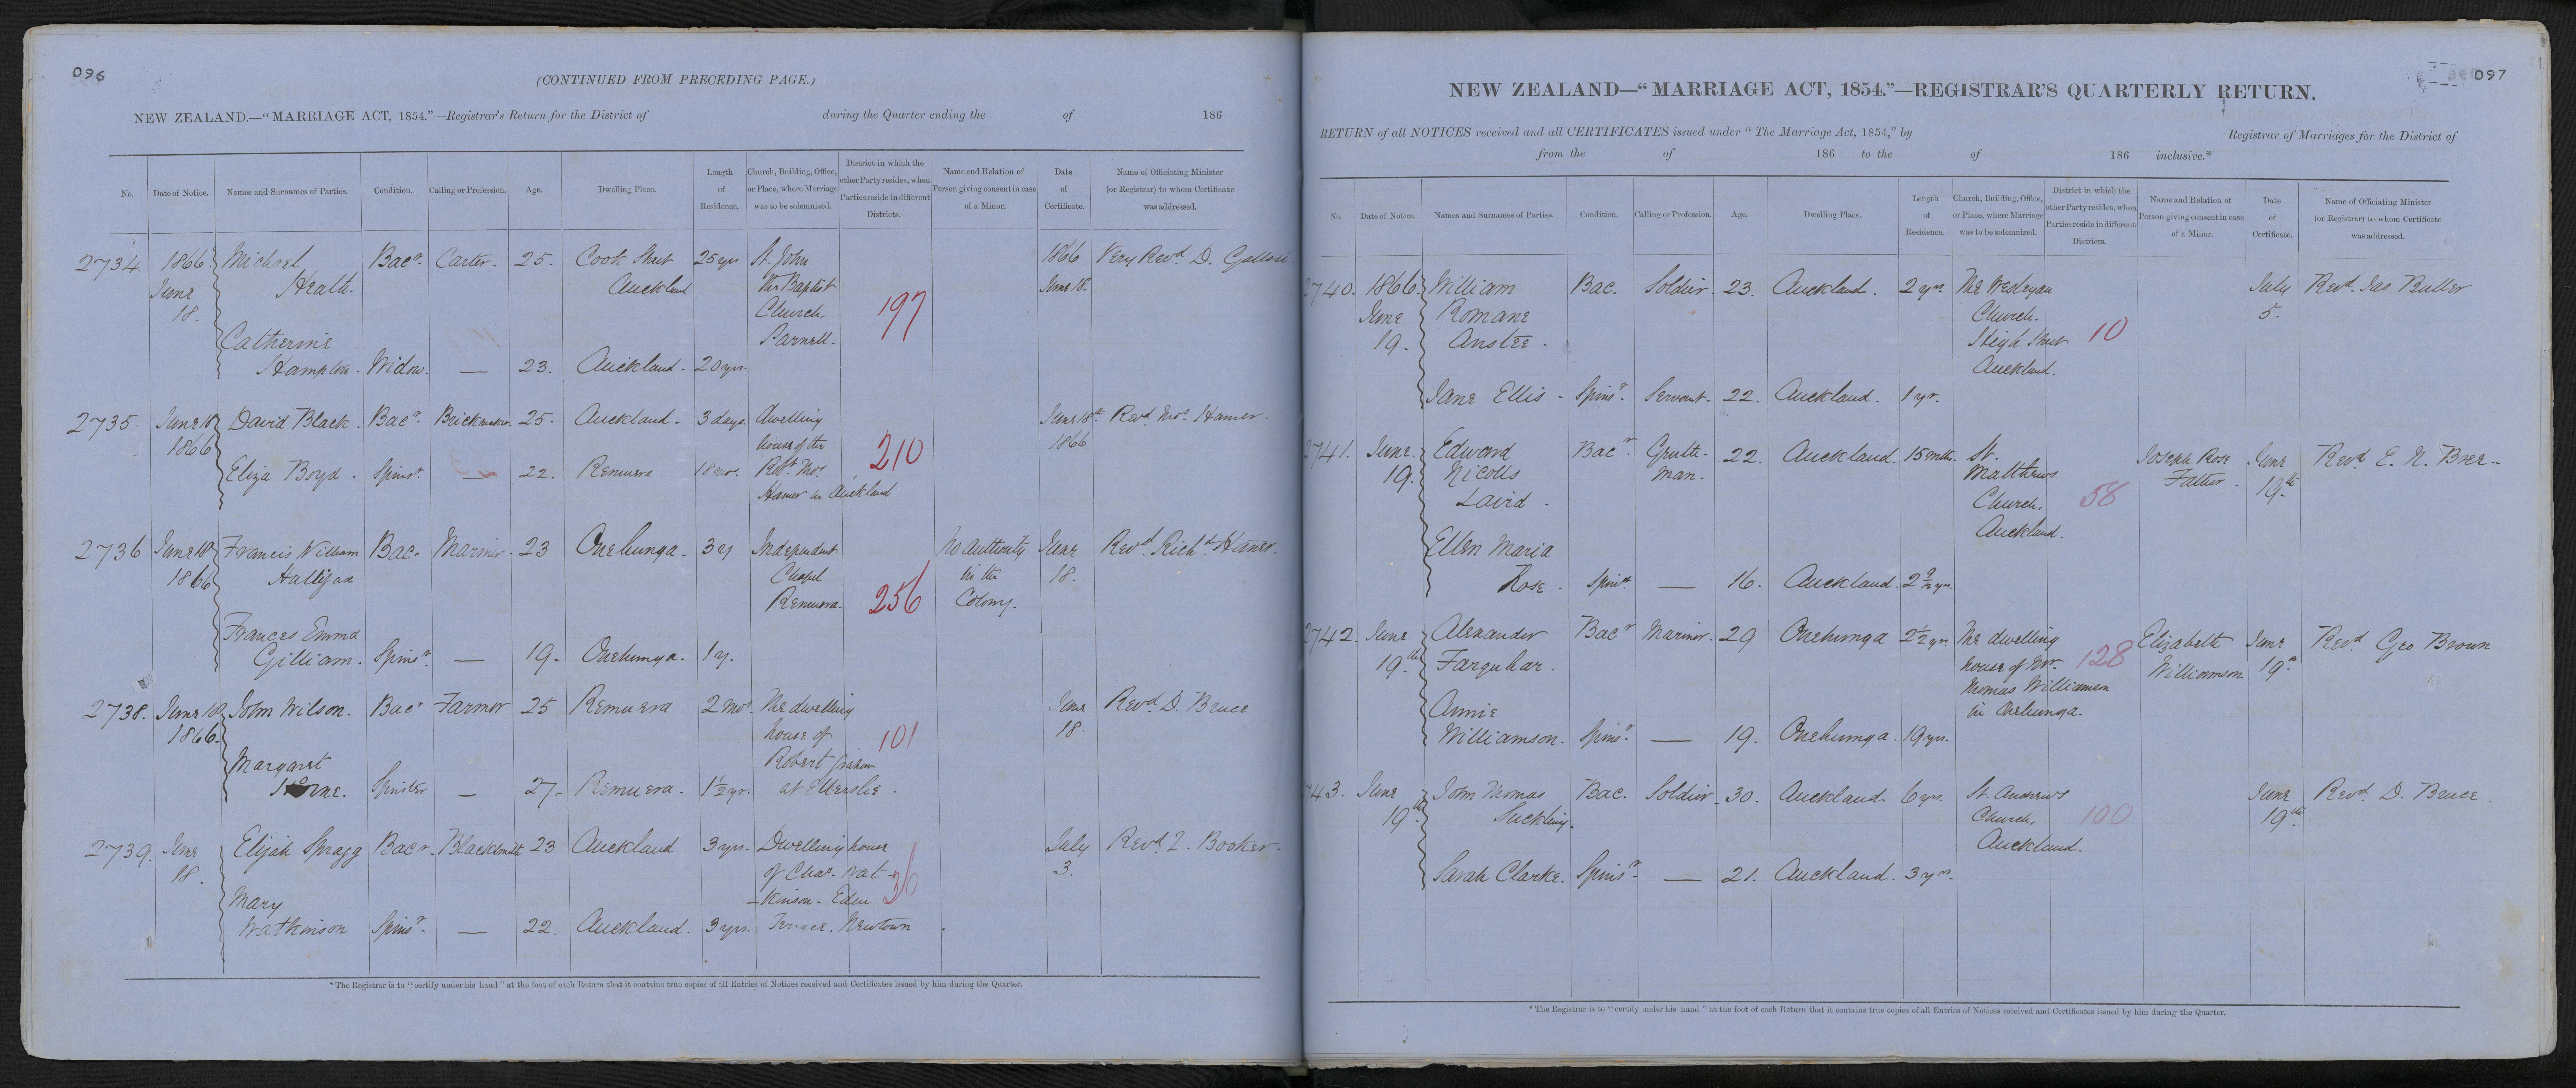 096
(CONTINUED FROM PRECEDING PAGE.)
NEW ZEALAND.—"MARRIAGE ACT, 1854."—Registrar's Return for the District of during the Quarter ending the of 186
No. Date of Notice. Names and Surnames of Parties. Condition. Calling or Profession. Age. Dwelling Place. Length of Residence. Church, Building, Office, or Place, where Marriage was to be solemnized. District in which the other Party resides, when Parties reside in different Districts. Name and Relation of Person giving consent in case of a Minor. Date of Certificate. Name of Officiating Minister (or Registrar) to whom Certificate was addressed.
2734. 1866. Michael Bacr. Carter. 25. Cook Street 25 yrs St. John 1866 Very Revd. D.
June Heath. Auckland the Baptist June 18.
18. Church. 197
Catherine Parnell.
Hampton. Widow. — 23. Auckland. 20 yrs.
2735. June 18 David Black. Bacr. Brickmaker. 25. Auckland. 3 days. Dwelling June 18th Revd. Thos. Hamer.
1866 house of the 210 1866
Eliza Boyd. Spinsr. — 22. Remuera Thos.
Hamer in Auckland
2736 June 18 Francis William Bac. Mariner. 23 Onehunga. 3 y Independent No authority June Revd. Richd. Hamer.
1866 Hallifax Chapel in the 18.
Remuera. 256 Colony.
Frances Emma
Gilliam. Spinsr. — 19. Onehunga. 1 y.
2738. June 18 John Wilson. Bacr Farmer 25 Remuera 2 mos. The dwelling June Revd. D. Bruce
1866. house of 101 18.
Margaret Robert Graham
Horne. Spinster — 27. Remuera. 1½ yr. at Ellerslie.
2739. June Elijah Spragg Bacr. Blacksmith 23 Auckland 3 yrs. Dwelling house July Revd. I. Booker.
18. of Chas. Wat- 36 3.
Mary -kinson. Eden
Watkinson Spinsr. — 22. Auckland. 3 yrs. Terrace. Newtown.
* The Registrar is to "certify under his hand" at the foot of each Return that it contains true copies of all Entries of Notices received and Certificates issued by him during the Quarter.
097
NEW ZEALAND—"MARRIAGE ACT, 1854."—REGISTRAR'S QUARTERLY RETURN.
RETURN of all NOTICES received and all CERTIFICATES issued under "The Marriage Act, 1854," by Registrar of Marriages for the District of
from the of 186 to the of 186 inclusive.*
No. Date of Notice. Names and Surnames of Parties. Condition. Calling or Profession. Age. Dwelling Place. Length of Residence. Church, Building, Office, or Place, where Marriage was to be solemnized. District in which the other Party resides, when Parties reside in different Districts. Name and Relation of Person giving consent in case of a Minor. Date of Certificate. Name of Officiating Minister (or Registrar) to whom Certificate was addressed.
2740. 1866. William Bac. Soldier. 23. Auckland. 2 yrs The Wesleyan July Revd. Jas Buller
June Romane Church. 5.
19. Anstee. High Street 10
Auckland.
Jane Ellis. Spinsr. Servant. 22. Auckland. 1 yr.
2741. June. Edward Bacr. Gentle- 22. Auckland. 15 mths. St. Joseph Rose June Revd. E. N. Bree.
19. Nicolls man. Matthews Father. 19th
Laird. Church. 58
Auckland.
Ellen Maria
Rose. Spinst — 16. Auckland. 2½ yrs.
2742. June Alexander Bacr Mariner. 29 Onehunga 2½ yrs. The dwelling Elizabeth June Revd. Geo Brown
19th Farquhar. house of Mr. 128 Williamson 19th
Thomas Williamson
Annie in Onehunga.
Williamson. Spinsr. — 19. Onehunga. 19 yrs.
2743. June John Thomas Bac. Soldier. 30. Auckland. 6 yrs. St. Andrews June Revd. D. Bruce.
19th Suckling. Church, 100 19th
Auckland.
Sarah Clarke. Spinsr. — 21. Auckland. 3 yrs.
* The Registrar is to "certify under his hand" at the foot of each Return that it contains true copies of all Entries of Notices received and Certificates issued by him during the Quarter.